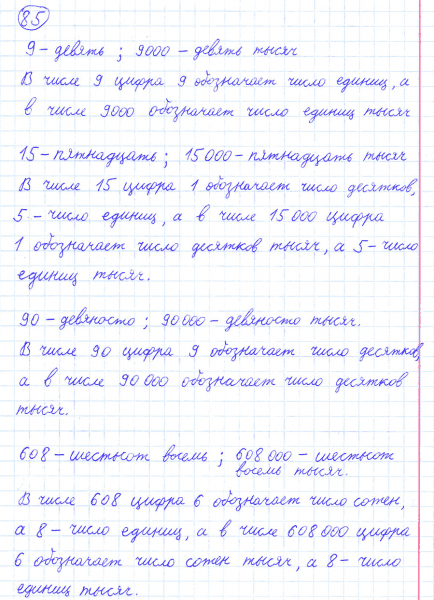 85
9 – девять ; 9000 – девять тысяч
В числе 9 цифра 9 обозначает число единиц, а
в числе 9000 обозначает число единиц тысяч
15 – пятнадцать ; 15 000 – пятнадцать тысяч
В числе 15 цифра 1 обозначает число десятков,
5 – число единиц, а в числе 15 000 цифра
1 обозначает число десятков тысяч, а 5 – число
единиц тысяч.
90 – девяносто ; 90 000 – девяносто тысяч.
В числе 90 цифра 9 обозначает число десятков,
а в числе 90 000 обозначает число десятков
тысяч.
608 – шестьсот восемь ; 608 000 – шестьсот
восемь тысяч.
В числе 608 цифра 6 обозначает число сотен,
а 8 – число единиц, а в числе 608 000 цифра
6 обозначает число сотен тысяч, а 8 – число
единиц тысяч.